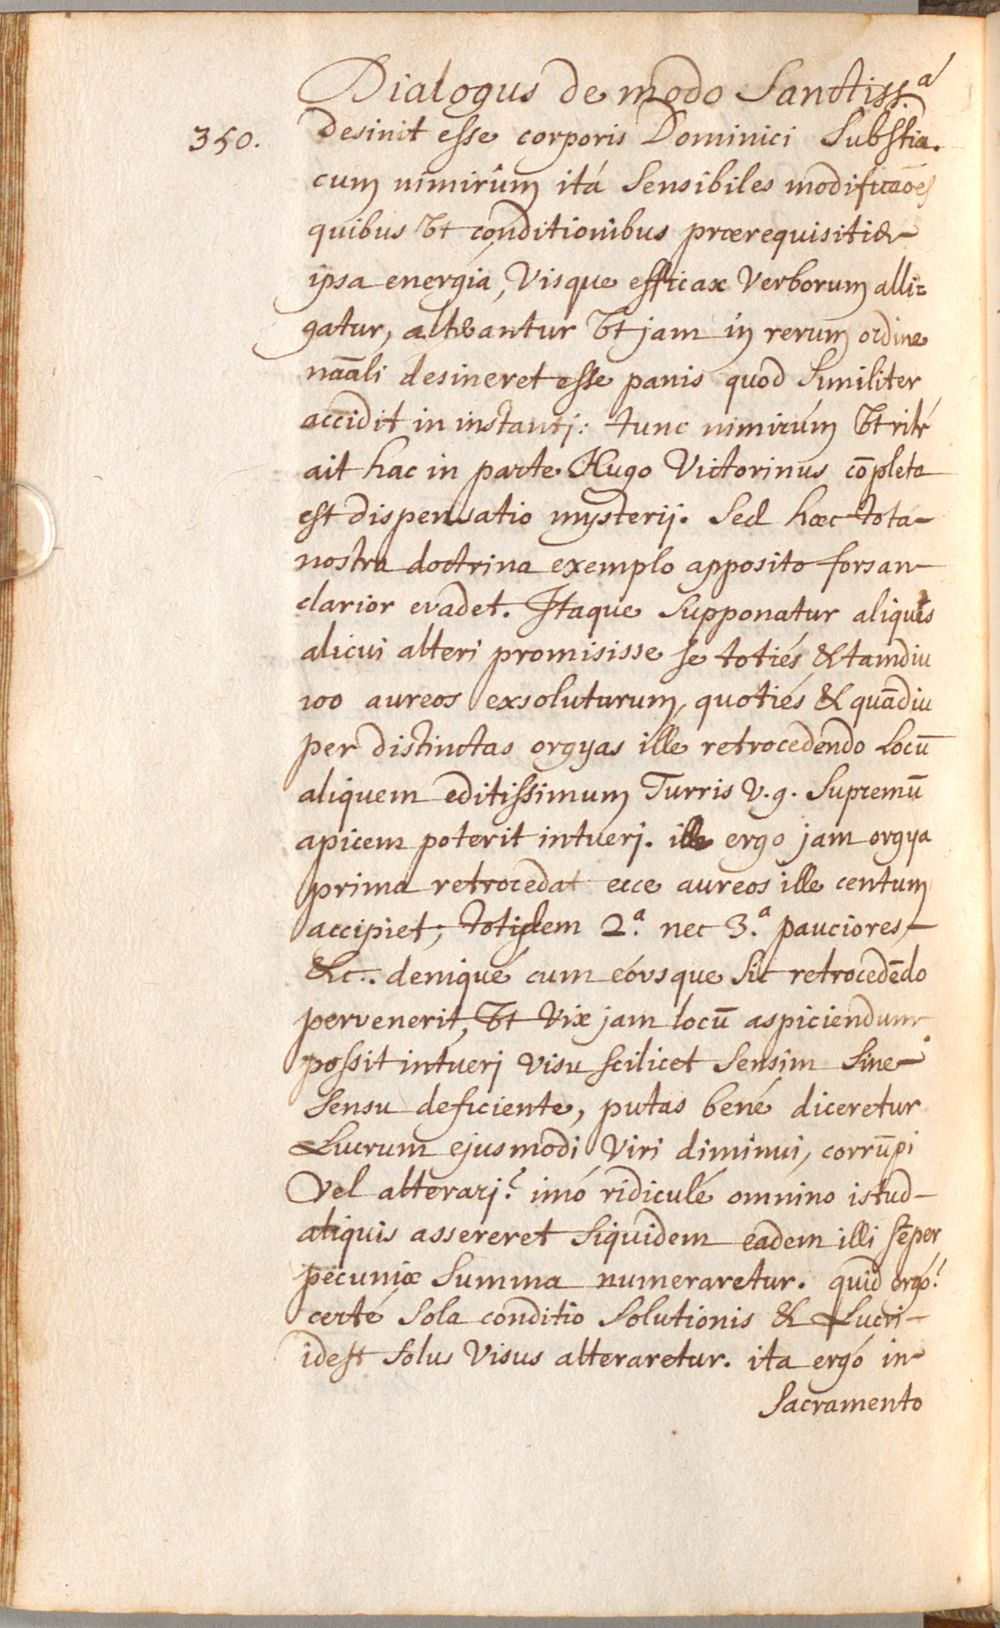 Dialogus de modo Sanctiss.ᵃ
350.
desinit esse corporis Dominici Substīa.
cum nimirùm itá sensibiles modificaōes
quibus Vt conditionibus prærequisitis
ipsa energiá, Visque efficax Verborum alli=
gatur, alterantur Vt jam in rerum ordine
naāli desineret esse panis quod similiter
accidit in instanti: tunc nimirúm Vt rité
ait hac in parte Hugo Victorinus cōpleta
est dispensatio mysterij. Sed hæc tota
nostra doctrina exemplo apposito forsan
clarior evadet. Itaque supponatur aliquis
alicui alteri promisisse se totiés & tamdiu
100 aureos exsoluturum, quotiés & quādiu
per distinctas orgyas ille retrocedendo Locū
aliquem editissimum Turris V.g. Supremū
apicem poterit intueri. ille ergo jam orgya
prima retrocedat ecce aureos ille centum
accipiet; totidem 2.ᵃ nec 3.ᵃ pauciores,
&c.. deniqué cum eóvsque sic retrocedēdo
pervenerit, Vt Vix jam locū aspiciendum
possit intueri Visu scilicet sensim sine
sensu deficiente, putas bené diceretur
Lucrum ejusmodi Viri diminui, corrūpi
Vel alterari? imó ridiculé omnino istud
aliquis assereret siquidem eadem illi sēper
pecuniæ summa numeraretur. quid ergó?
certé sola conditio solutionis & Lucri
idest solus Visus alteraretur. ita ergó in
Sacramento